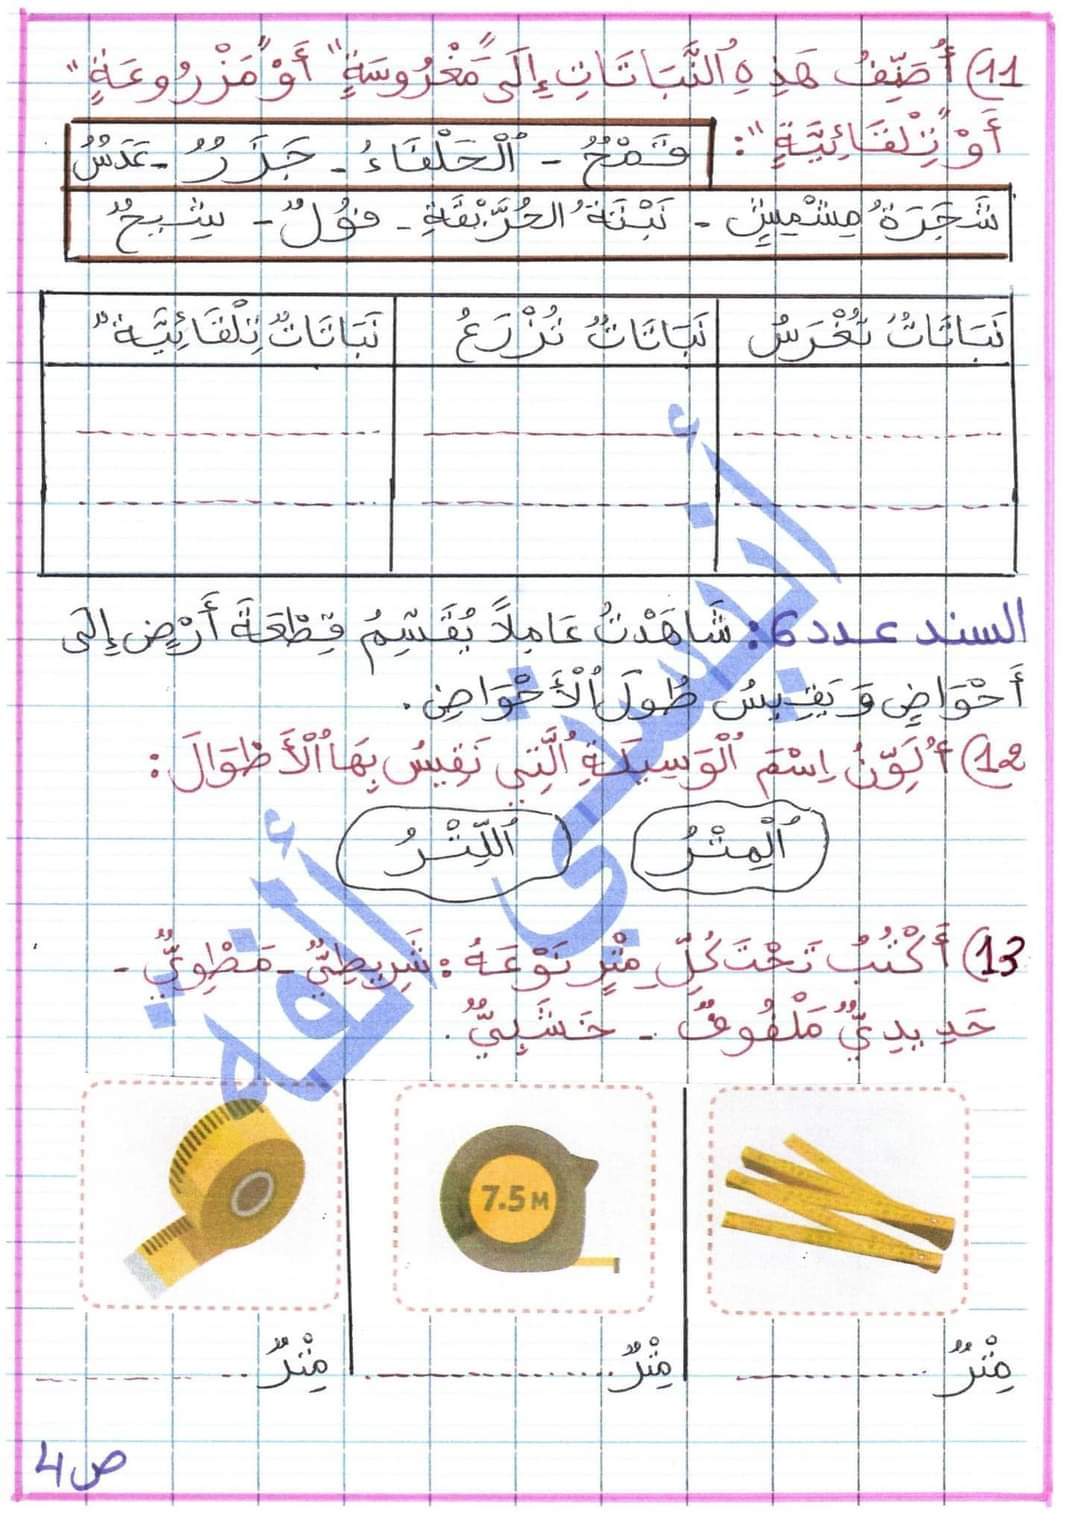 11) أُصَنِّفُ هَذِهِ اُلنَّبَاتَاتِ إِلَى "مَغْرُوسَةٍ" أَوْ "مَزْرُوعَةٍ"
أَوْ "تِلْقَائِيَّةٍ":
قَمْحٌ - اُلْحَلْفَاءُ - جَزَرٌ - عَدَسٌ
شَجَرَةُ مِشْمِشٍ - نَبْتَةُ الحُرَّيْقَةِ - فُولٌ - شِيحٌ
نَبَاتَاتٌ تُغْرَسُ
نَبَاتَاتٌ تُزْرَعُ
نَبَاتَاتٌ تِلْقَائِيَّةٌ
السند عدد 6: شَاهَدْتُ عَامِلًا يُقَسِّمُ قِطْعَةَ أَرْضٍ إِلَى
أَحْوَاضٍ وَيَقِيسُ طُولَ اُلْأَحْوَاضِ.
12) أُلَوِّنُ اِسْمَ اُلْوَسِيلَةِ اُلَّتِي نَقِيسُ بِهَا اُلْأَطْوَالَ:
اُلْمِتْرُ
اُللِّتْرُ
13) أَكْتُبُ تَحْتَ كُلِّ مِتْرٍ نَوْعَهُ: شَرِيطِيٌّ - مَطْوِيٌّ -
حَدِيدِيٌّ مَلْفُوفٌ - خَشَبِيٌّ.
7.5 M
مِتْرٌ ............
مِتْرٌ ............
مِتْرٌ ............
ص 4
أنيستي ألفة